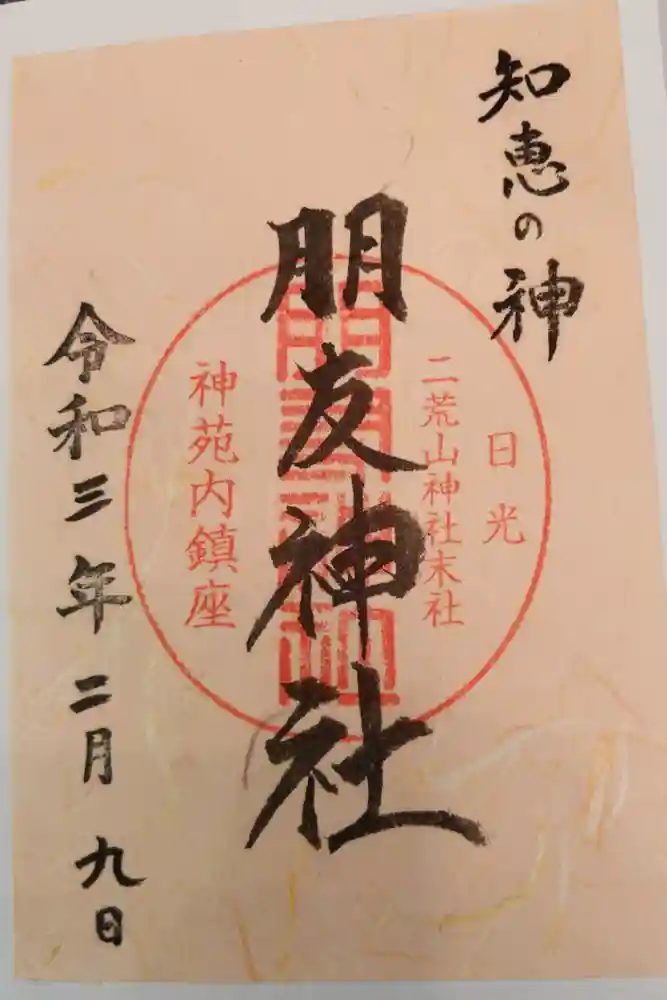 知恵の神
日光
二荒山神社末社
朋友神社
朋友神社
神苑内鎮座
令和三年二月九日